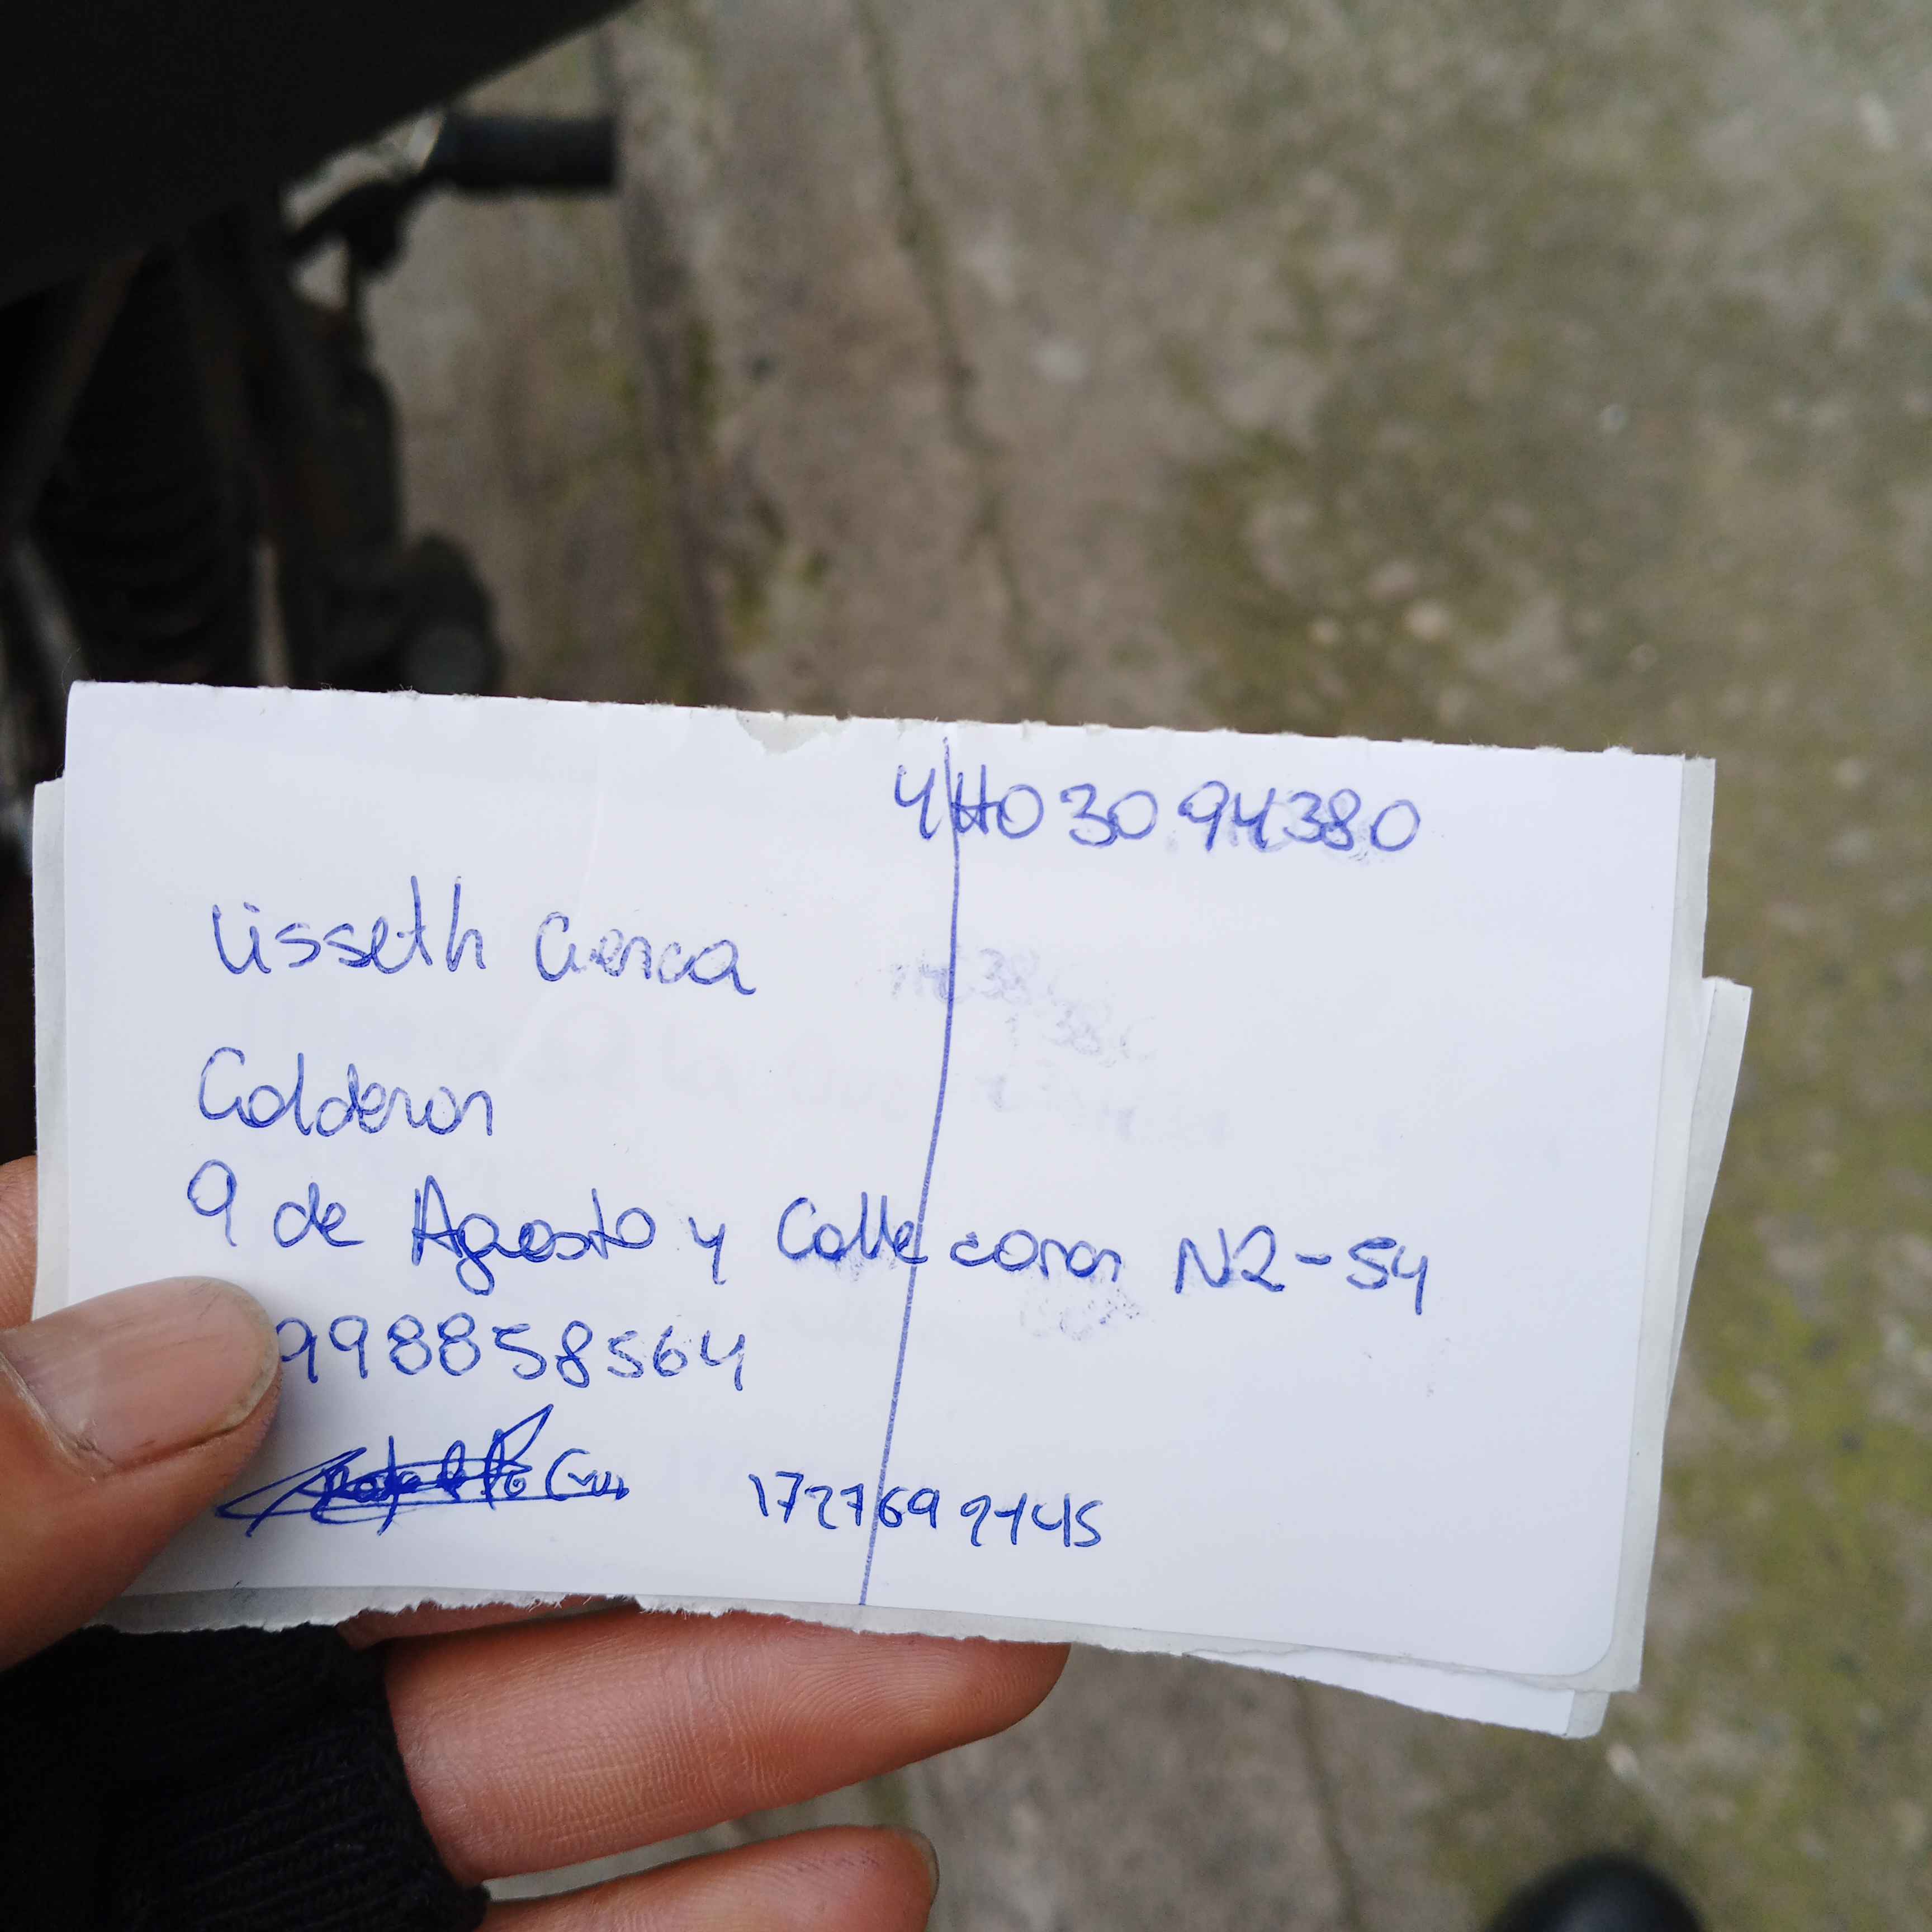 4H03094380
Lisseth Cuenca
Calderon
9 de Agosto y Calle conor N2-54
998858564
1727692445